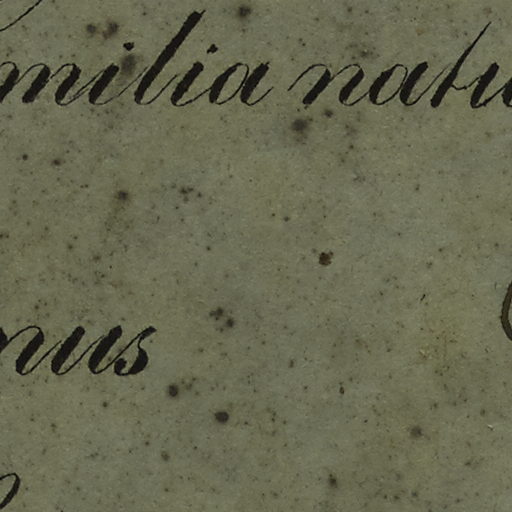 milia natu
nus